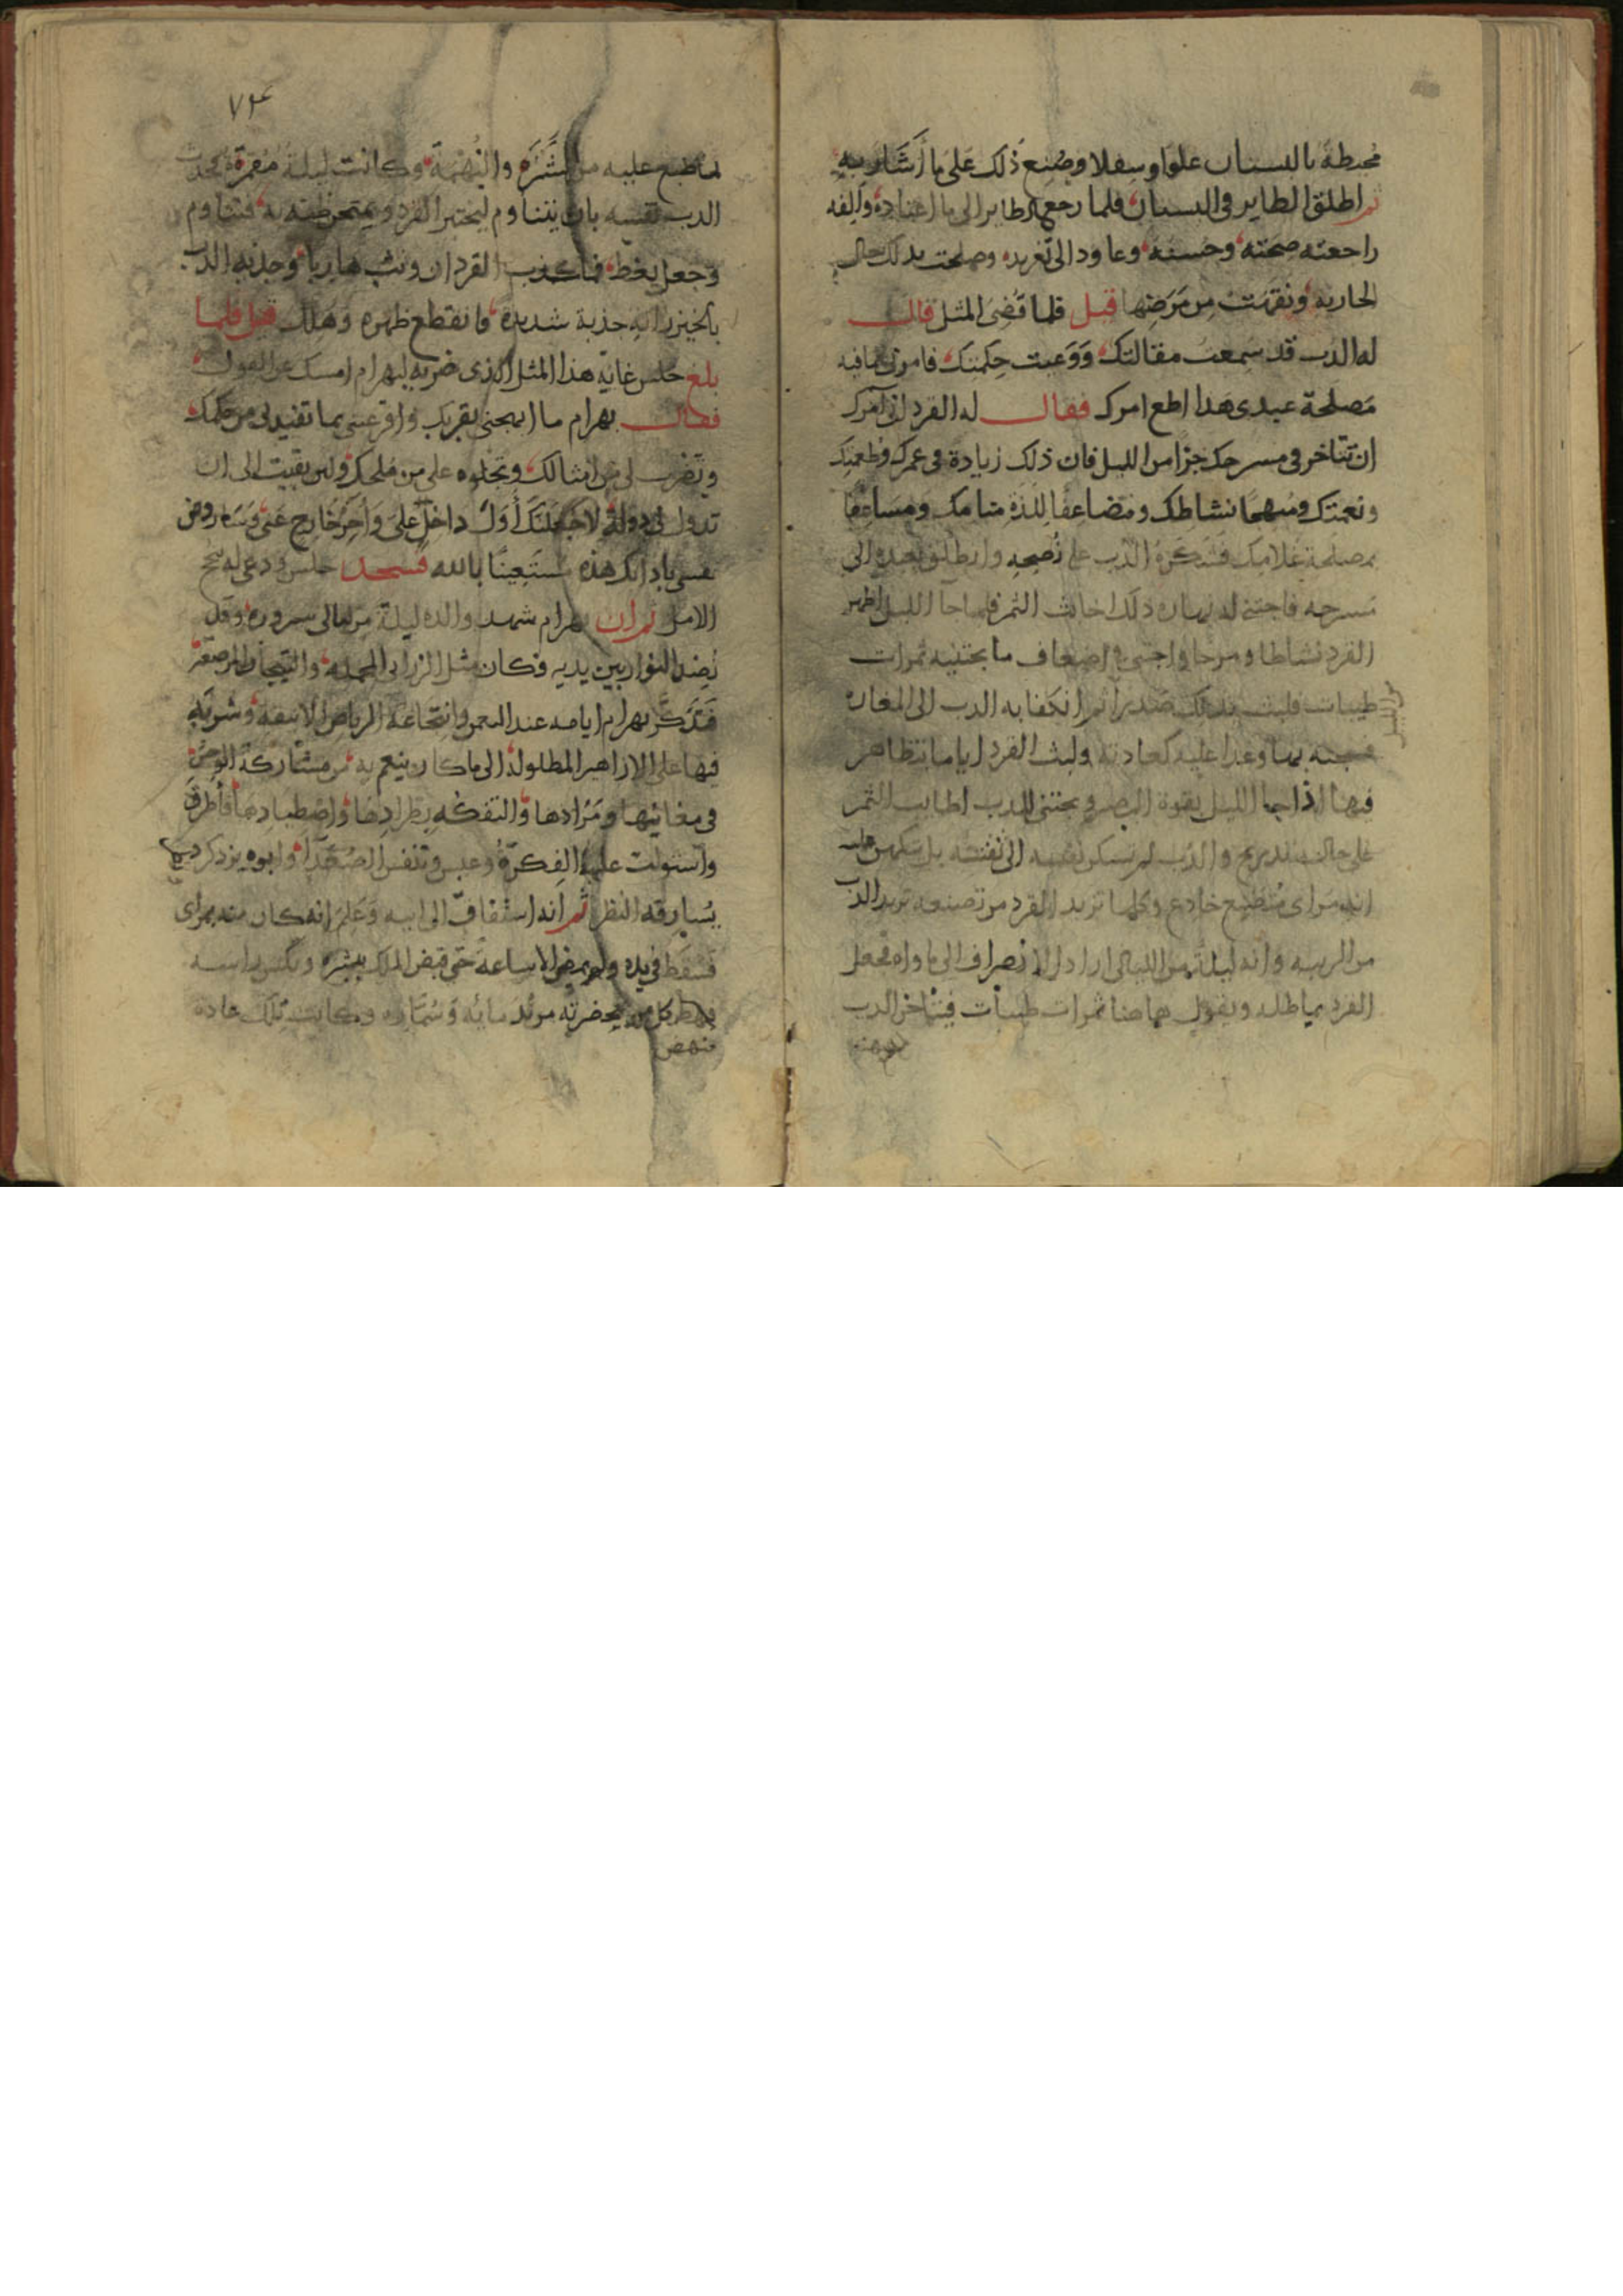 محيطة بالبستان علوا وسفلا وصُنِعَ ذلك عَلى ما أشَار بهِ
ثم اطلق الطاير في البستان فلما رجع الطاير الى ما اعتاده وألِفه
راجعته صحّته وحُسنه وعاود الى تغريده وصلحت بذلك حال
الجارية ونقهَت مِن مَرَضِها قيل فلما قَضى المثل قال
له الدب قد سمعت مقالتك وَوَعيت حِكمتك فامرنى بما فيه
مَصلحة عبدى هذا اطع امرك فقال له القرد انى آمرك
ان تتاخر فى مسرحك جزا من الليل فان ذلك زيادة فى عمرك وطعمتك
ونعمتك ومُهيجا نشاطك ومضاعفا للذة منامك ومساعفا
بمصلحة غلامك فشكرهُ الدّب على نُصحِهِ وانطلق بعبده الى
مسرحه فاجتنى له نهاره ذلك اخابث الثمر فلما جا الليل اظهر
القرد نشاطا ومرحا واجتنى اضعاف ما يجتنيه ثمرات
طيبات فلبث بذلك صَدرًا ثم انكفا به الدب الى المغارة
فسجنه بها وغدا عليه كعادته ولبث القرد اياما يتظاهر
فيها اذا جا الليل بقوة البصر ويجتنى للدب اطايب الثمر
على حال تدريج والدّب لم تسكن نفسه الى ثقته بل
انه مرائ مُتطبع خادع وكلما تزيد القرد من تصنعه تزيد الدب
من الريبه وانه ليلة من الليالى اراد الانصراف الى ماواه فجعل
القرد يماطله ويقول هاهنا ثمرات طيبات فيتاخر الدب
٧٣
لما طبع عليه من الشَّرَه والنَّهْمَة وكانت ليلة مقمرة فحدث
الدب نفسه بان يتناوم ليختبر القرد ويمتحن ظنه به فتناوم
وجعل يغط فما كذب القرد ان وثب هاربا وجذبه الدب
جذبة شديدة فانقطع ظهره وهلك قيل فلما
بلغ حلس غاية هذا المثل الذى ضربه لبهرام امسك عن القول
فقال بهرام ما ابهجنى بقربك واقر عينى بما تفيدنى من حكمك
وتضرب لى من امثالك وتجلوه على من ملحك ولئن بقيت الى ان
تدول لى دولة لاجعلنّك أوّلَ داخلٍ علىّ وآخِرَ خارج عنّى وساروض
نفسى بادابك هذه مستعينًا بالله فسجد حلس ودعى له
الامل ثم ان بهرام شهد والده ليلة من ليالى سروره وقد
نُضِد النوار بين يديه فكان مثل الزرابى المخملة والتيجان المرصعة
فَتَذَكَّر بهرام ايامه عند النعمن وانتجاعه الرياض الانيقة وشربَه
فيها على الازاهير المطلولة الى ما كان ينعم به من مشاركة الوحش
فى مغانيها ومَرَادها والتفكه بطرادها واصطيادها فأطرَق
واستولت عليه الفِكرةُ وعبس وتنفس الصعدا وابوه يزدكرد
يُسارقه النظر ثم انه استفاق الى ابيه وعَلِمَ انه كان منه بمراى
فسقط فى يده ولم يمض الا ساعة حتى قبض الملك بِشره ونكس راسه
كل من بحضرته من ندمائه وسُمّاره وكانت تلك عادة
منهم